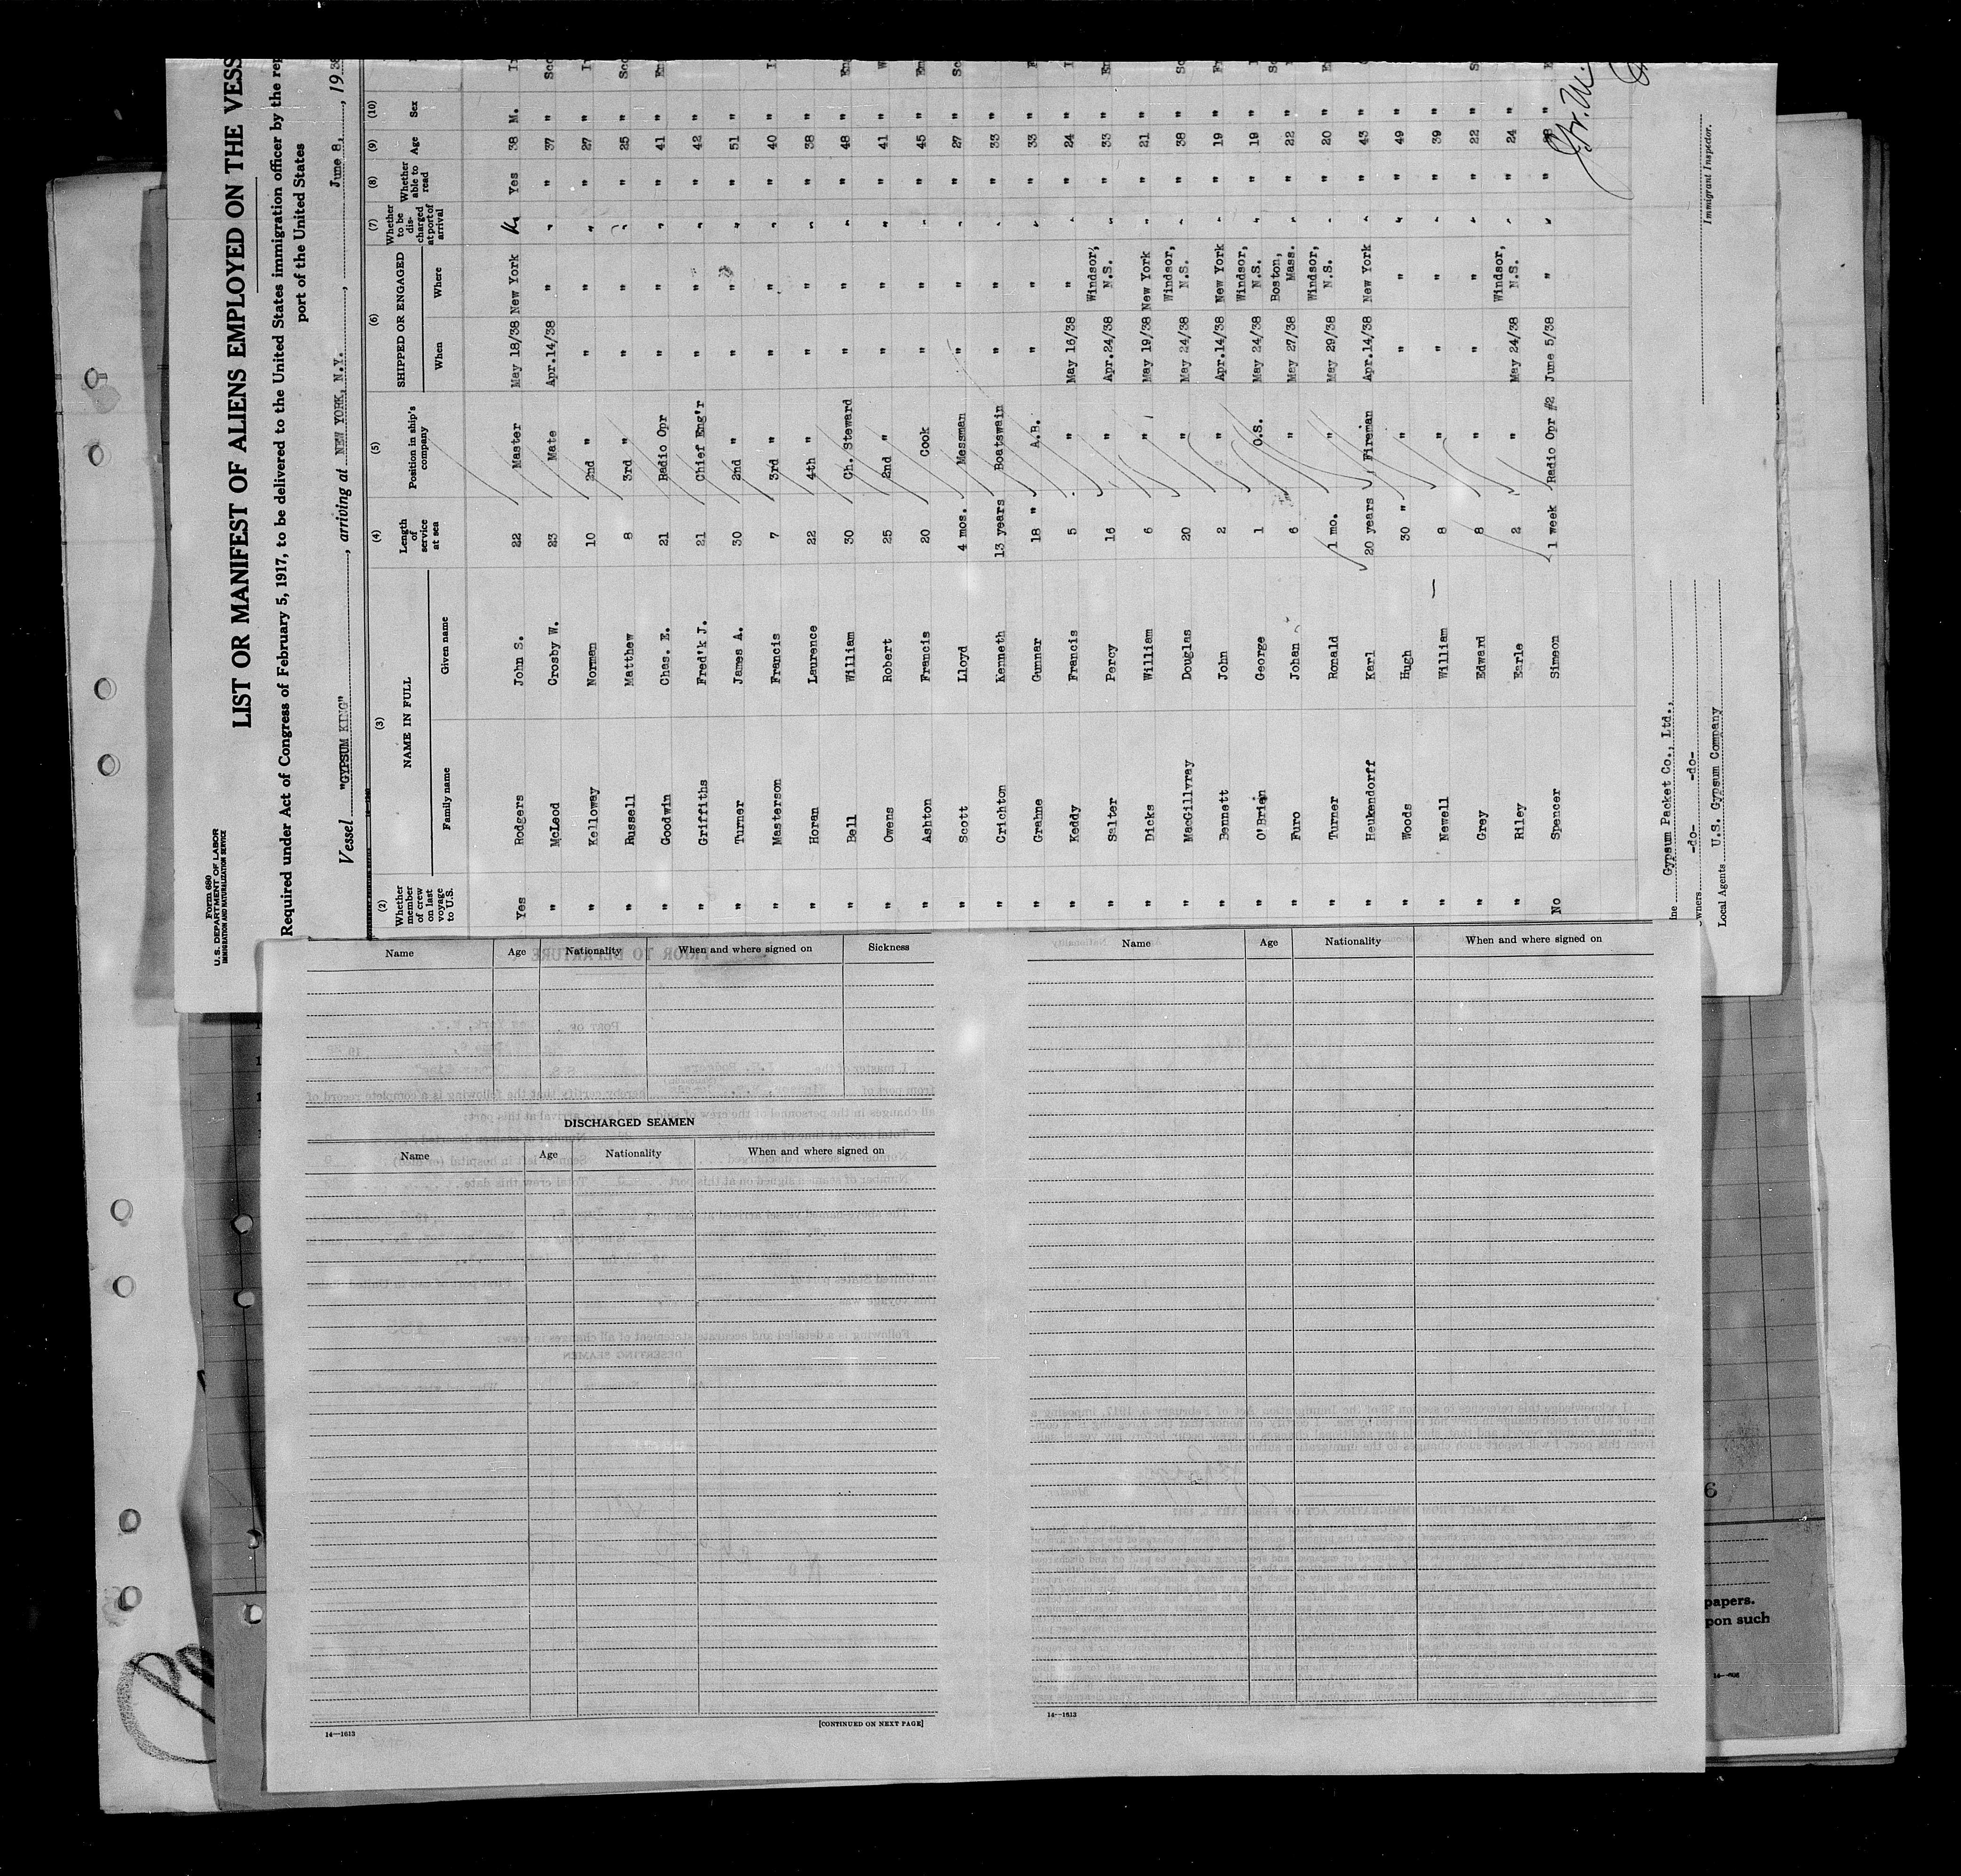 Form 680
U. S. DEPARTMENT OF LABOR
IMMIGRATION AND NATURALIZATION SERVICE
LIST OR MANIFEST OF ALIENS EMPLOYED ON THE VESS
Required under Act of Congress of February 5, 1917, to be delivered to the United States immigration officer by the rep
port of the United States
Vessel "GYPSUM KING", arriving at NEW YORK, N.Y., June 8, 1938
(2) (3) (4) (5) (6) (7) (8) (9) (10)
Whether member of crew on last voyage to U.S. NAME IN FULL Family name Given name Length of service at sea Position in ship's company SHIPPED OR ENGAGED When Where Whether to be discharged at port of arrival Whether able to read Age Sex
Yes Rodgers John S. 22 Master May 18/38 New York Yes 38 M.
" McLeod Crosby W. 23 Mate Apr.14/38 " " 37 "
" Kelloway Norman 10 2nd " " " " 27 "
" Russell Matthew 8 3rd " " " " 25 "
" Goodwin Chas. E. 21 Radio Opr " " " 41 "
" Griffiths Fred'k J. 21 Chief Eng'r " " " 42 "
" Turner James A. 30 2nd " " " " 51 "
" Masterson Francis 7 3rd " " " " 40 "
" Horan Laurence 22 4th " " " " 38 "
" Bell William 30 Ch. Steward " " " 48 "
" Owens Robert 25 2nd " " " " 41 "
" Ashton Francis 20 Cook " " " 45 "
" Scott Lloyd 4 mos. Messman " " " 27 "
" Crichton Kenneth 13 years Boatswain " " " 33 "
" Grahne Gunnar 18 " A.B. " " " 33 "
" Keddy Francis 5 " May 16/38 " " 24 "
" Salter Percy 16 " Apr.24/38 Windsor, N.S. " 33 "
" Dicks William 6 " May 19/38 New York " 21 "
" MacGillvray Douglas 20 " May 24/38 Windsor, N.S. " 38 "
" Bennett John 2 " Apr.14/38 New York " 19 "
" O'Brien George 1 O.S. May 24/38 Windsor, N.S. " 19 "
" Furo Johan 6 " May 27/38 Boston, Mass. " 22 "
" Turner Ronald 1 mo. " May 29/38 Windsor, N.S. " 20 "
" Heukendorff Karl 20 years Fireman Apr.14/38 New York " 43 "
" Woods Hugh 30 " " " " " 49 "
" Newell William 8 " " " " 39 "
" Grey Edward 8 " " " " 22 "
" Riley Earle 2 " May 24/38 Windsor, N.S. " 24 "
No Spencer Simson 1 week Radio Opr #2 June 5/38 " " "
ine Gypsum Packet Co., Ltd.,
wners -do- -do-
Local Agents U.S. Gypsum Company
Immigrant Inspector.
Name Age Nationality When and where signed on Sickness
DISCHARGED SEAMEN
Name Age Nationality When and where signed on
14—1613
[CONTINUED ON NEXT PAGE]
Name Age Nationality When and where signed on
14—1613
6
papers.
pon such